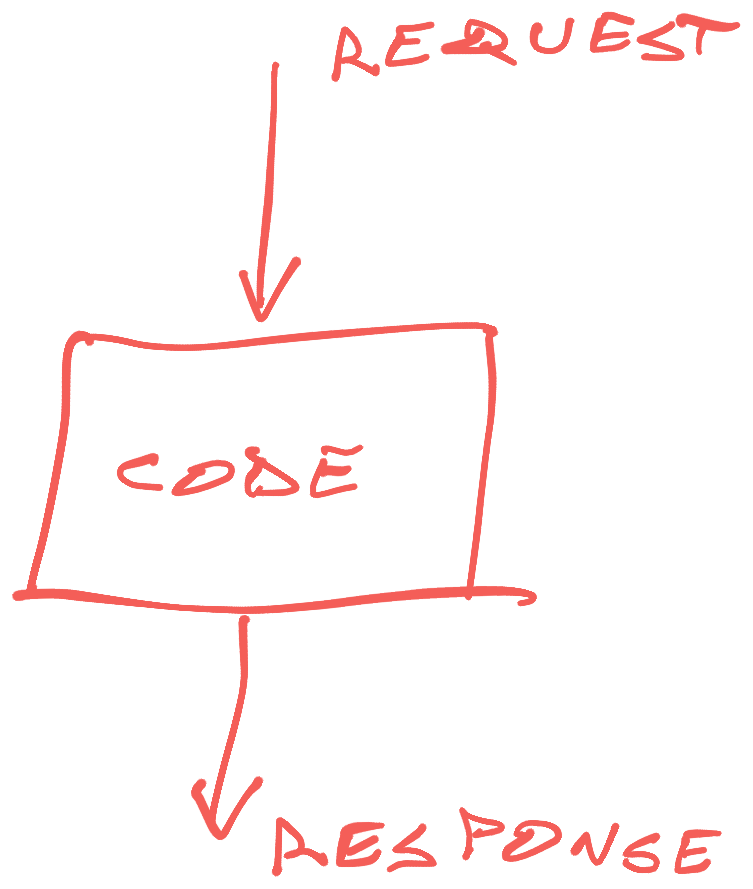 REQUEST
CODE
RESPONSE